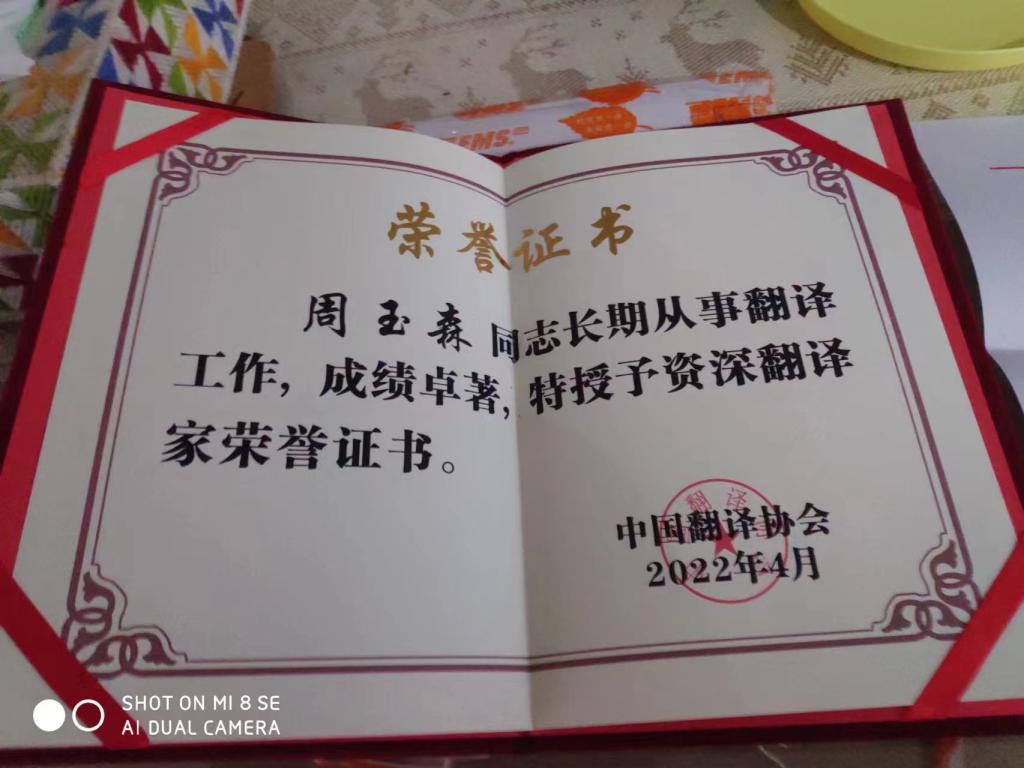 EMS
EMS
荣誉证书
周玉森同志长期从事翻译
工作，成绩卓著，特授予资深翻译
家荣誉证书。
中国翻译协会
2022年4月
SHOT ON MI 8 SE
AI DUAL CAMERA